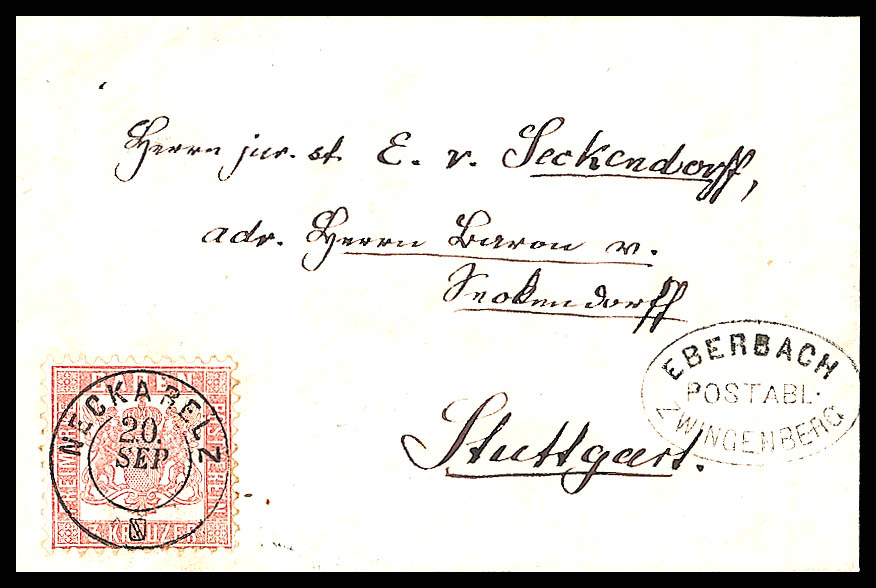 Herrn jur. st. E. v. Seckendorff,
adr. Herrn Baron v.
Seckendorff
Stuttgart.
EBERBACH
POSTABL.
ZWINGENBERG
BADEN
NECKARELZ
20.
SEP
KREUZER